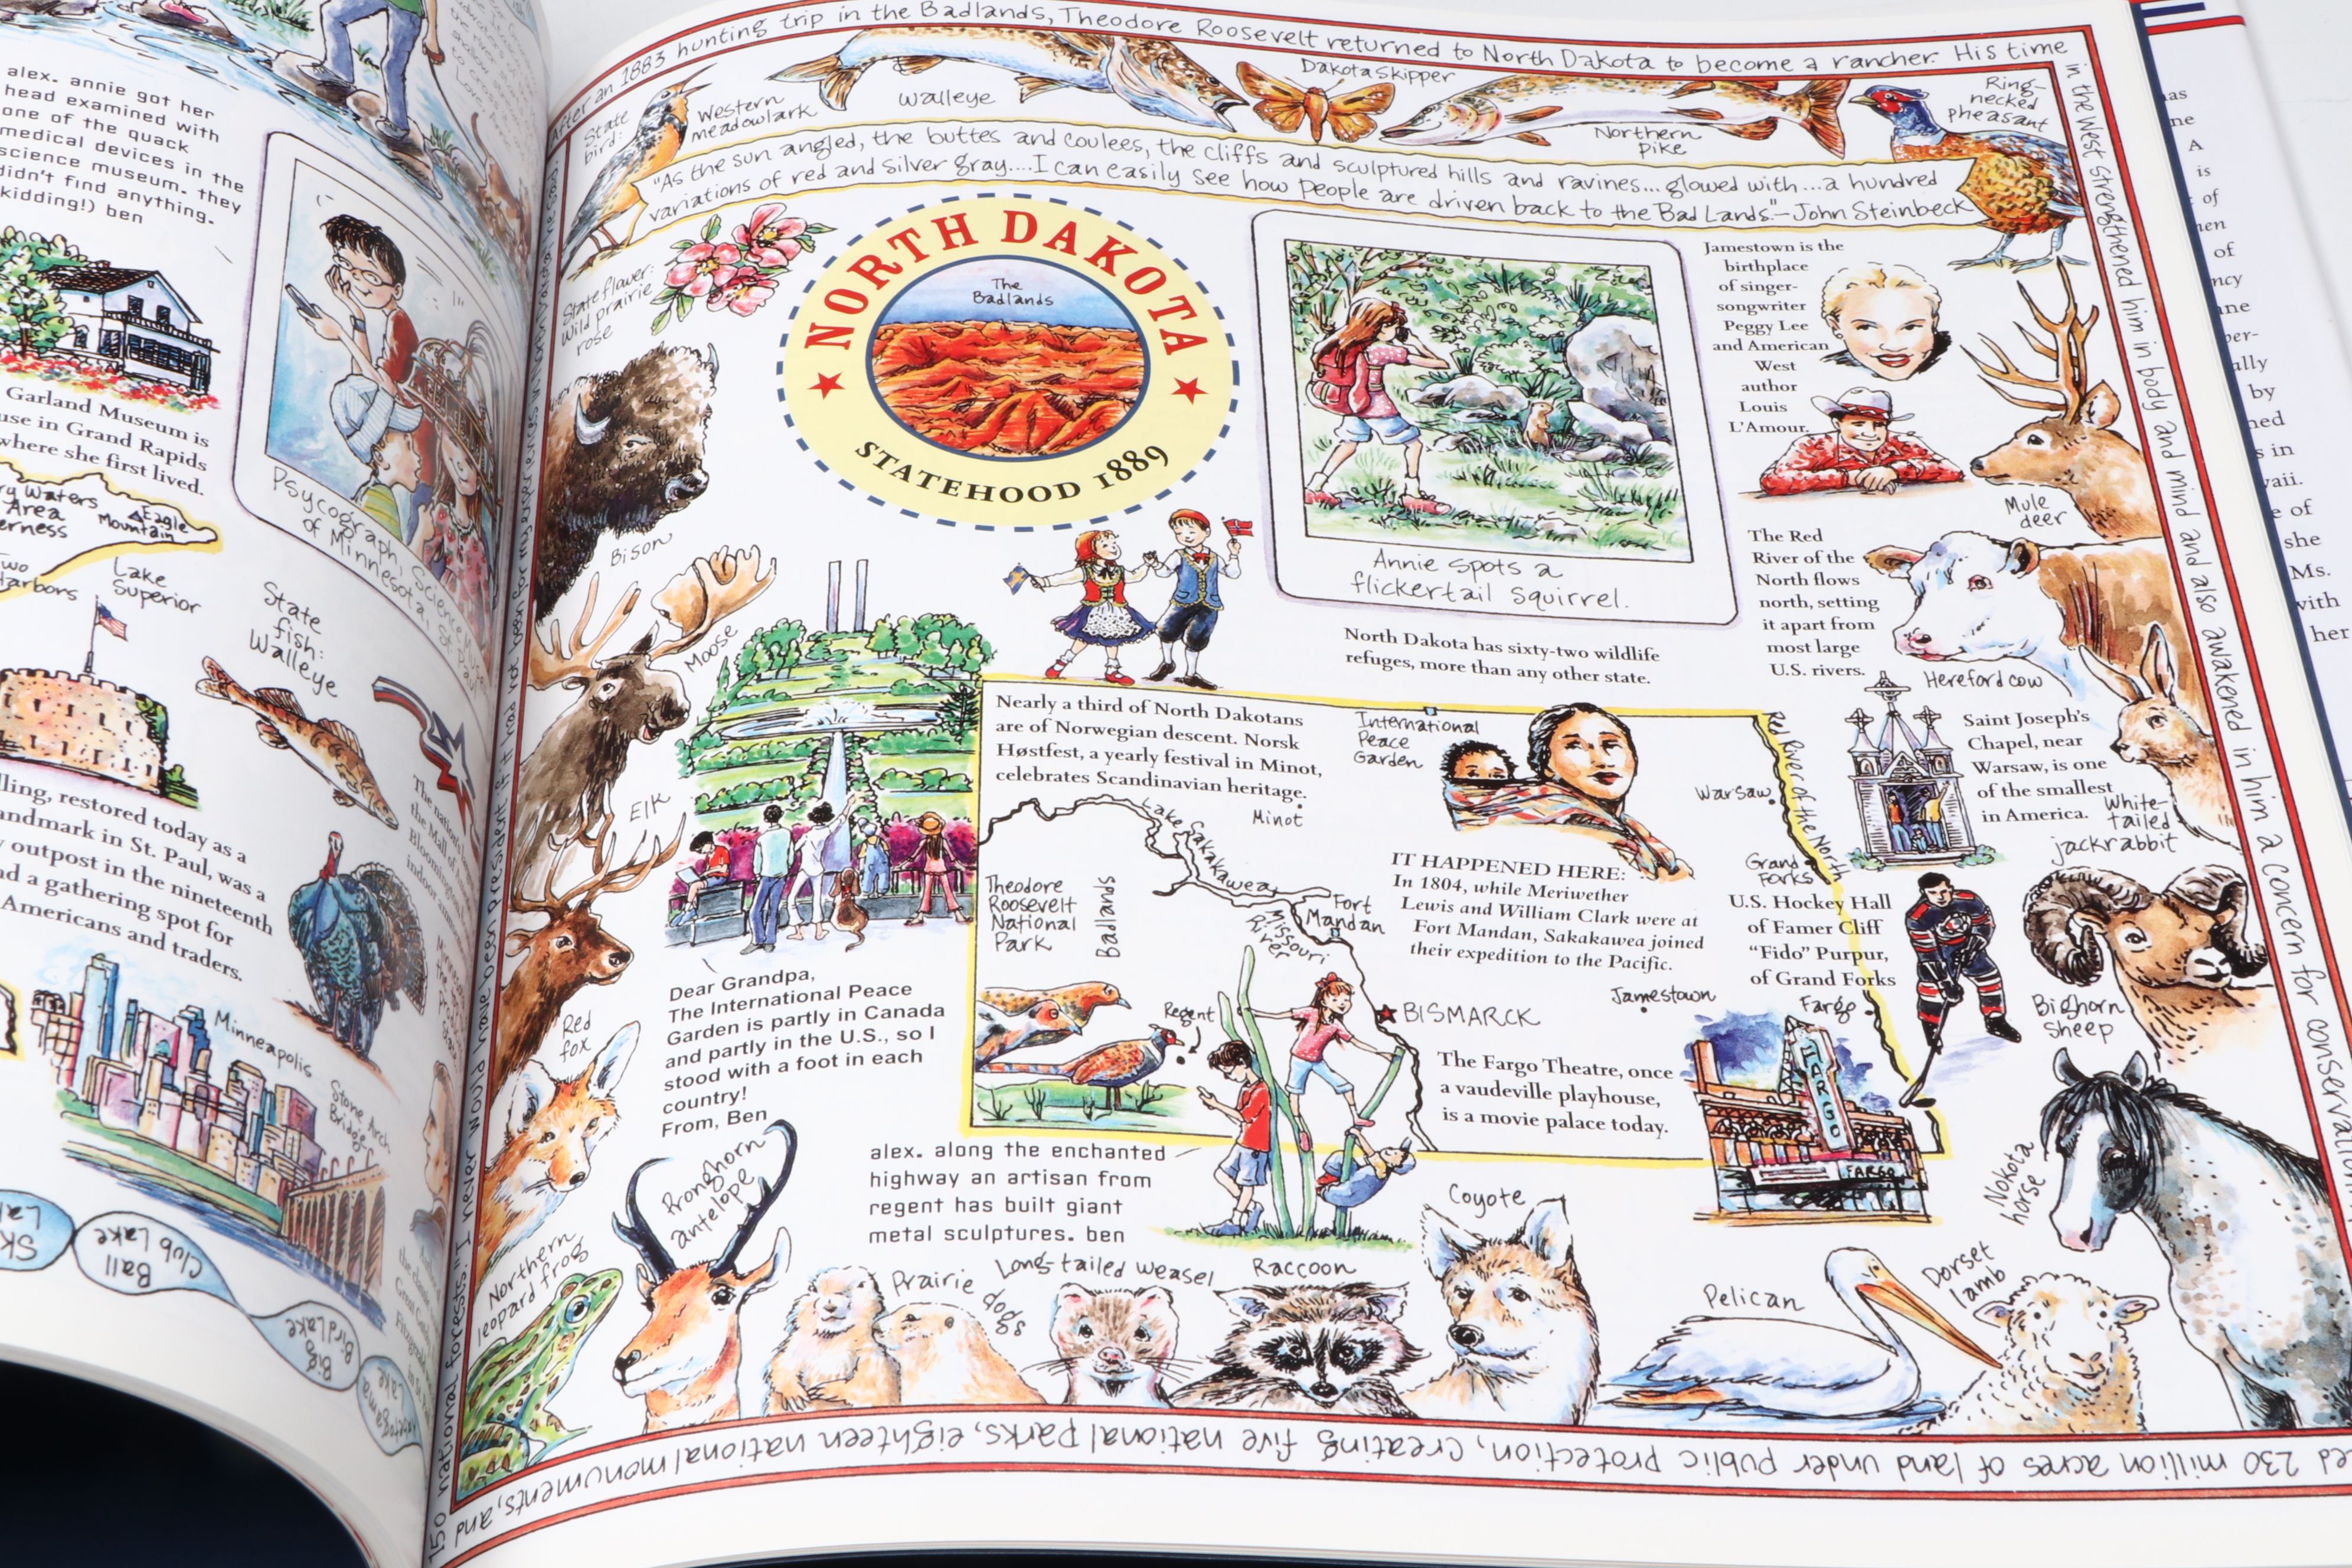 alex. annie got her
head examined with
one of the quack
medical devices in the
science museum. they
didn't find anything.
kidding!) ben
Garland Museum is
use in Grand Rapids
where she first lived.
Psycograph, Science Museum
of Minnesota, St. Paul
ry Waters
Area
erness
Eagle
Mountain
Two
Harbors
Lake
Superior
State
fish:
Walleye
lling, restored today as a
andmark in St. Paul, was a
y outpost in the nineteenth
nd a gathering spot for
Americans and traders.
Minneapolis
Stone Arch
Bridge
Ball
Club Lake
Big
Bird Lake
150
After an 1883 hunting trip in the Badlands, Theodore Roosevelt returned to North Dakota to become a rancher. His time
in the West strengthened him in body and mind and also awakened in him a concern for conservati
ed 230 million acres of land under public protection, creating five national parks, eighteen national monuments, and
national forests. "I never would have been president if it had not been for my experiences in North Dakota," he said.
State
bird:
Western
meadowlark
Walleye
Dakota Skipper
Northern
pike
Ring-
necked
pheasant
"As the sun angled, the buttes and coulees, the cliffs and sculptured hills and ravines... glowed with... a hundred
variations of red and silver gray....I can easily see how people are driven back to the Bad Lands."—John Steinbeck
State flower:
wild prairie
rose
NORTH DAKOTA
The
Badlands
STATEHOOD 1889
Annie spots a
flickertail squirrel.
Jamestown is the
birthplace
of singer-
songwriter
Peggy Lee
and American
West
author
Louis
L'Amour.
Mule
deer
Bison
Moose
Elk
Red
fox
North Dakota has sixty-two wildlife
refuges, more than any other state.
The Red
River of the
North flows
north, setting
it apart from
most large
U.S. rivers.
Hereford cow
Saint Joseph's
Chapel, near
Warsaw, is one
of the smallest
in America.
White-
tailed
jackrabbit
Nearly a third of North Dakotans
are of Norwegian descent. Norsk
Høstfest, a yearly festival in Minot,
celebrates Scandinavian heritage.
Minot
International
Peace
Garden
Warsaw
Red River of the North
Grand
Forks
Lake Sakakawea
Theodore
Roosevelt
National
Park
Badlands
Missouri
River
Fort
Mandan
IT HAPPENED HERE:
In 1804, while Meriwether
Lewis and William Clark were at
Fort Mandan, Sakakawea joined
their expedition to the Pacific.
U.S. Hockey Hall
of Famer Cliff
"Fido" Purpur,
of Grand Forks
Bighorn
sheep
Dear Grandpa,
The International Peace
Garden is partly in Canada
and partly in the U.S., so I
stood with a foot in each
country!
From, Ben
Regent
BISMARCK
Jamestown
Fargo
The Fargo Theatre, once
a vaudeville playhouse,
is a movie palace today.
FARGO
FARGO
Nokota
horse
alex. along the enchanted
highway an artisan from
regent has built giant
metal sculptures. ben
Northern
leopard frog
Pronghorn
antelope
Prairie dogs
Long-tailed weasel
Raccoon
Coyote
Pelican
Dorset
lamb
as
ne
A
is
of
hen
of
ncy
ine
per-
ally
by
ned
s in
vaii.
e of
she
Ms.
with
her